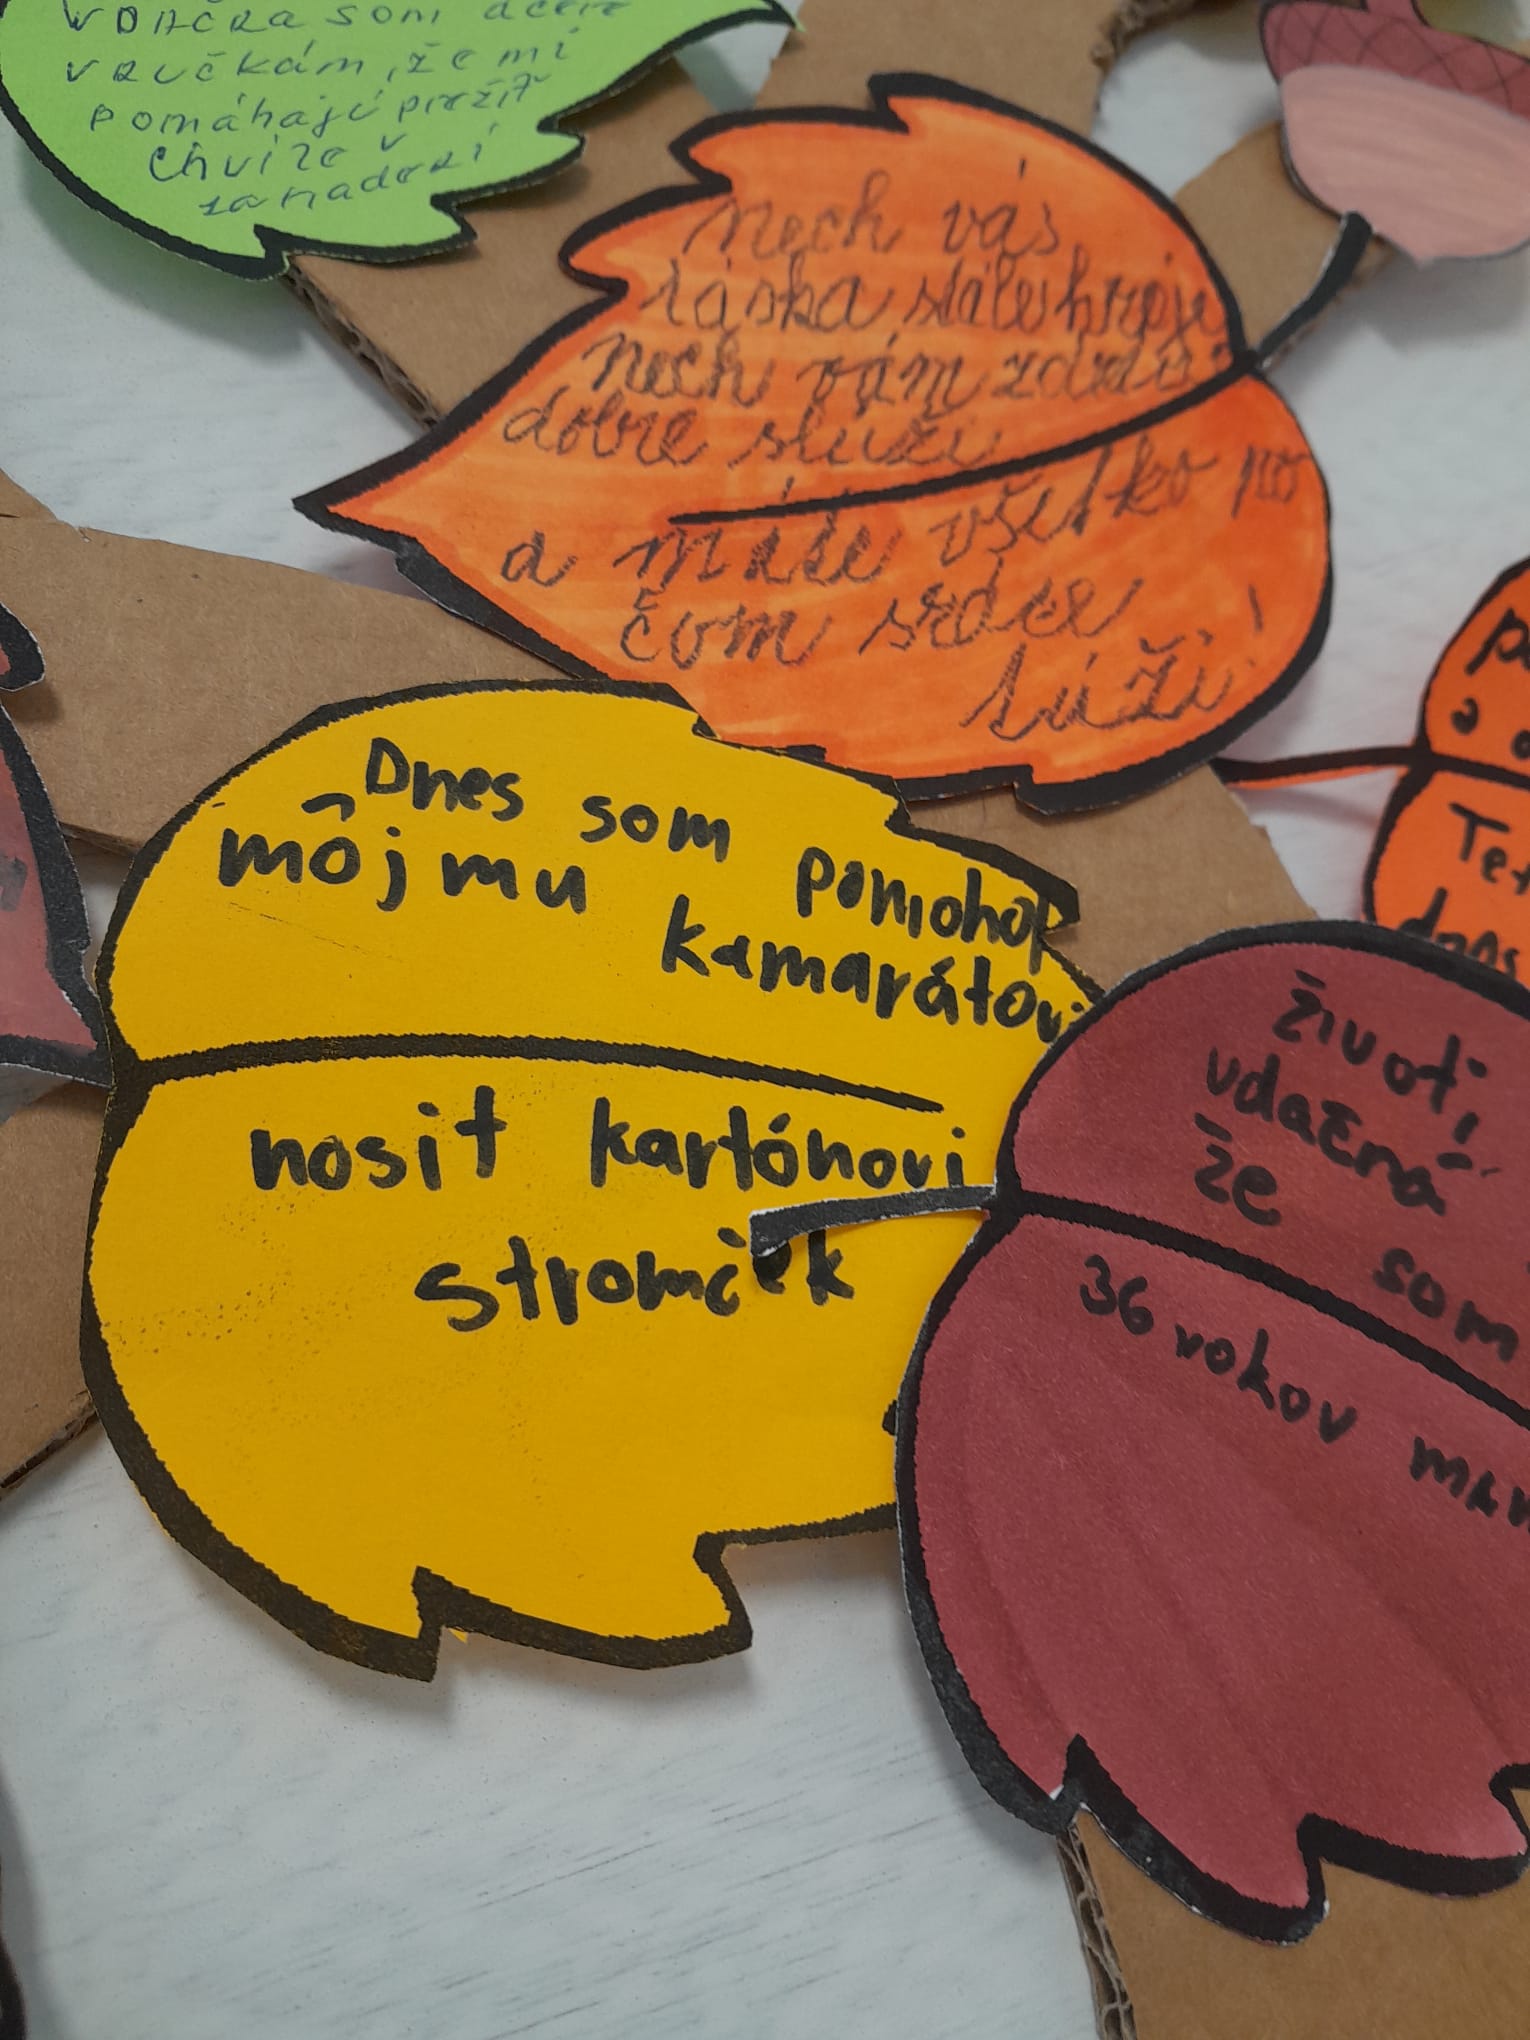 som dcére
vnučkám, že mi
pomáhajú prežiť
chvíle v
Nech vás
láska stále hreje
Nech vám zdravie
dobre slúži
a máte všetko po
čom srdce
túži!
Dnes som pomohol
môjmu kamarátovi
nosit kartónovi
stromček
život,
vdačná
že som
36 rokov